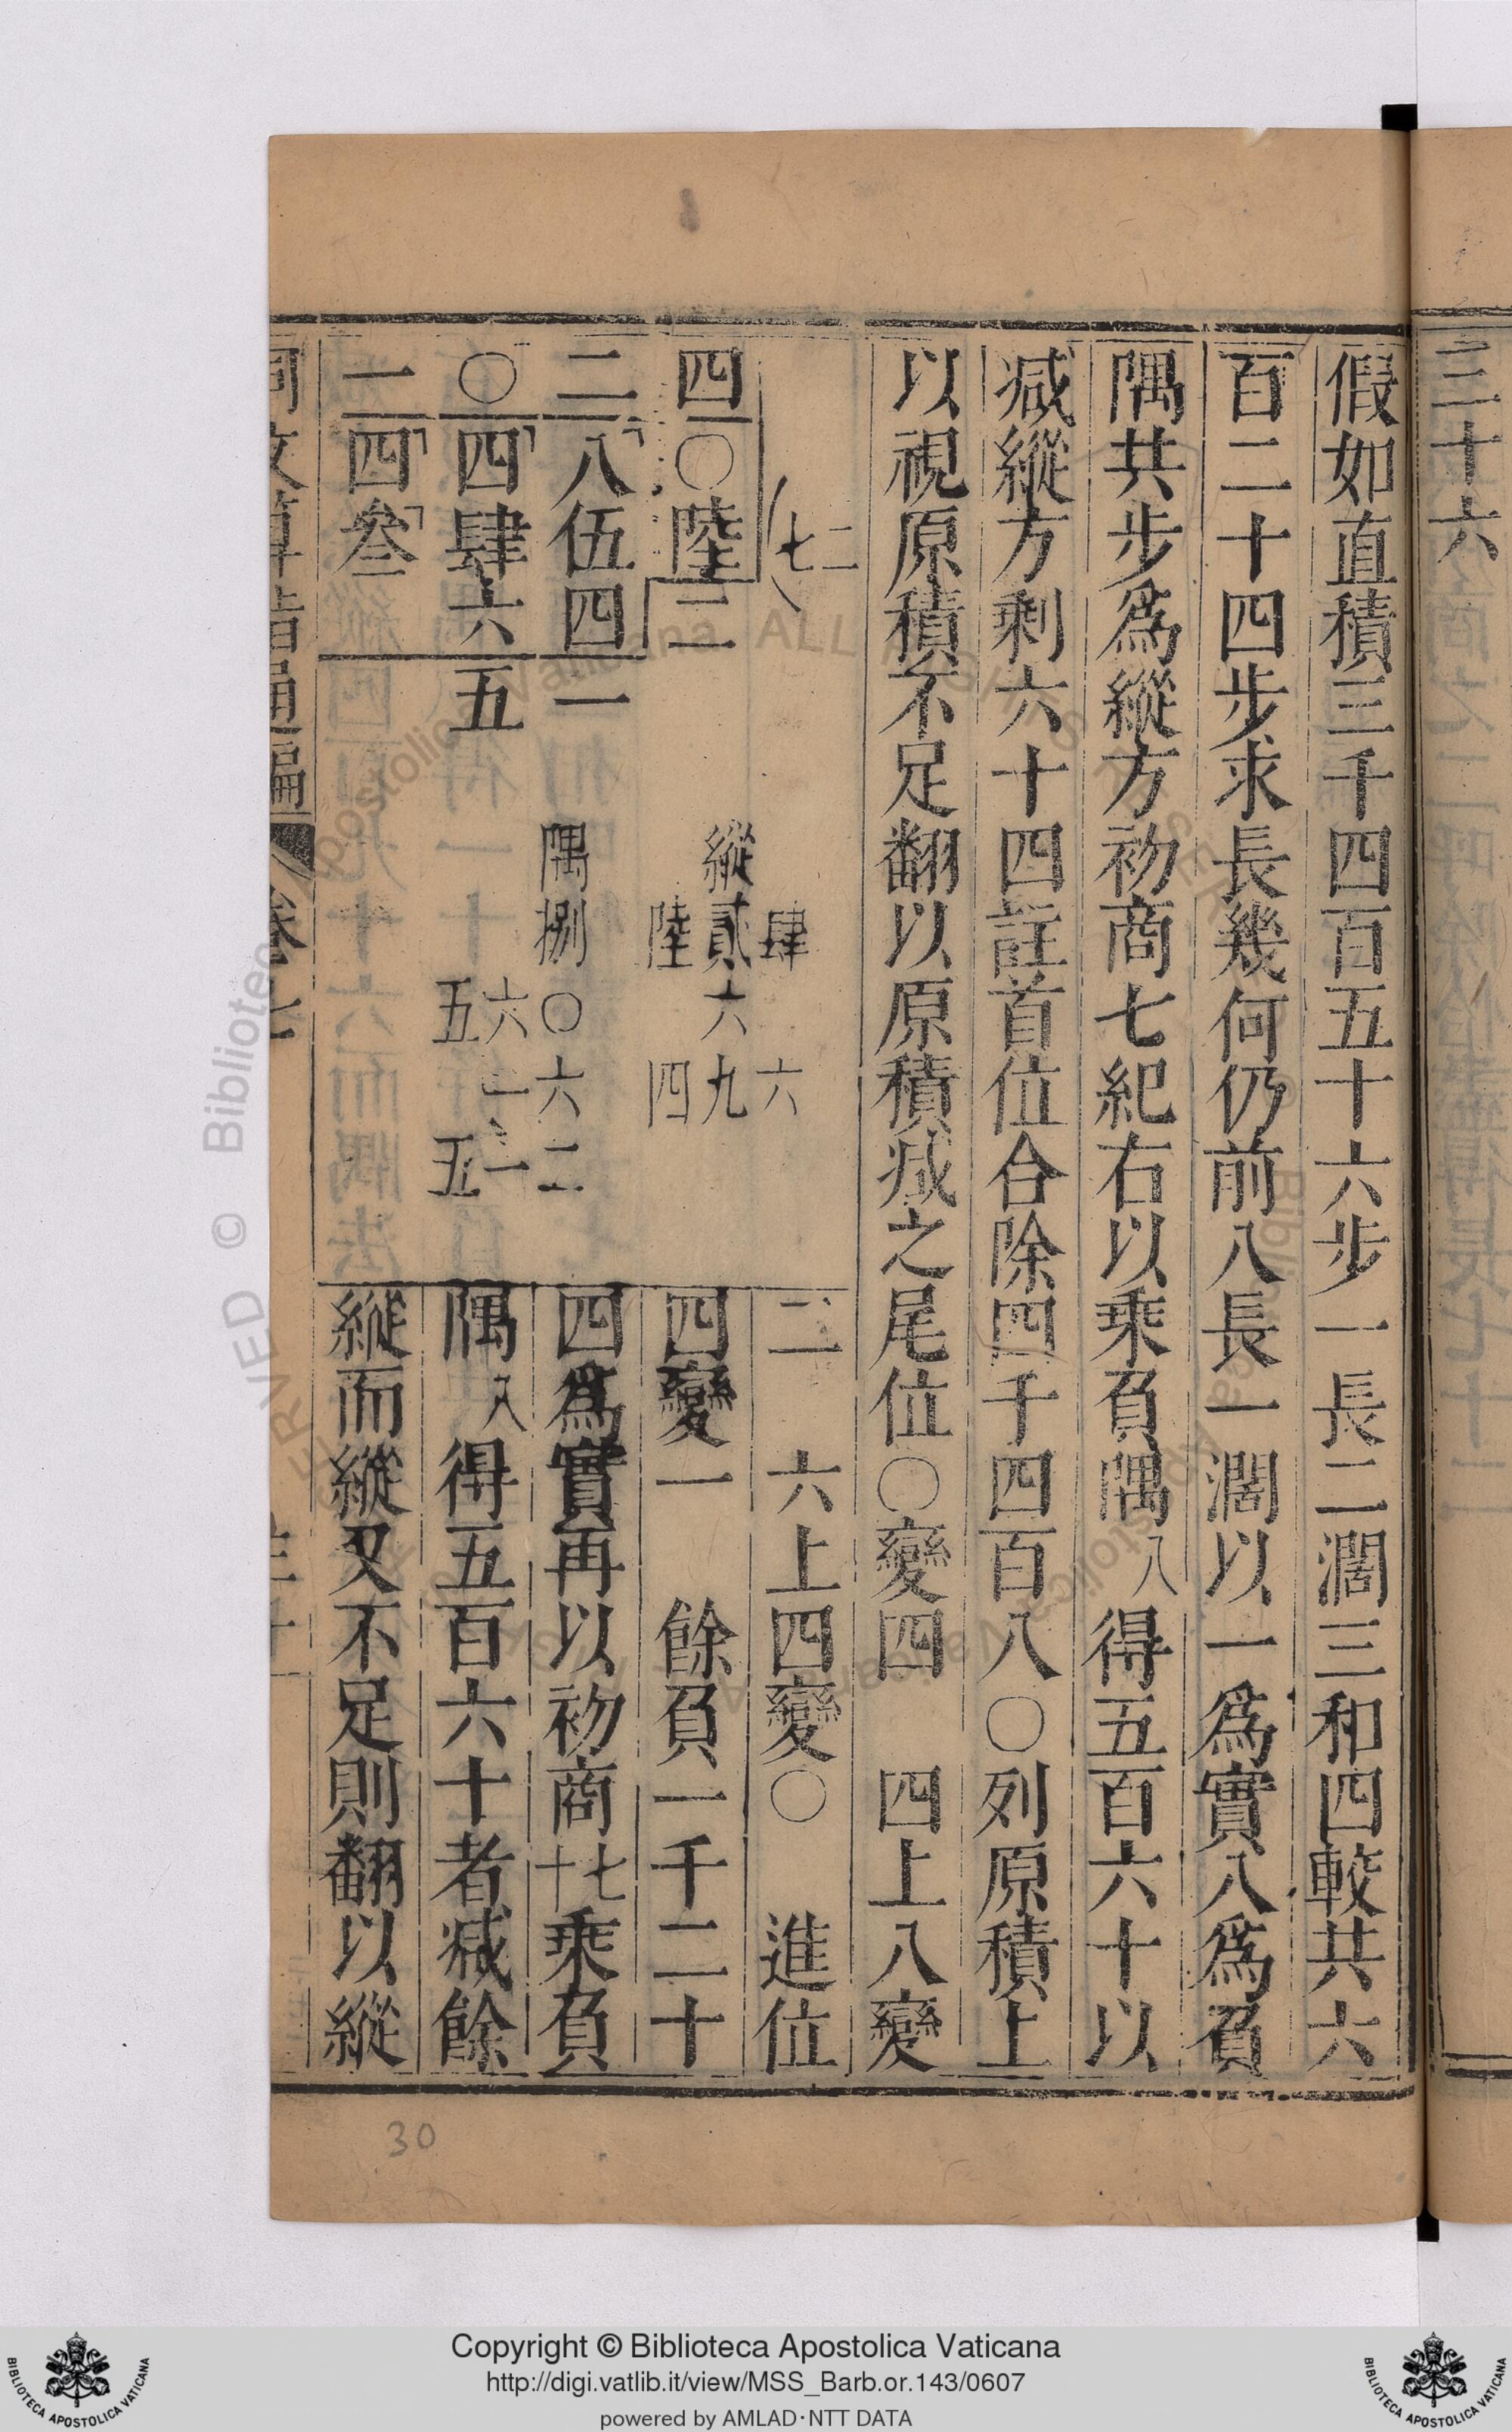 三十六
假如直積三千四百五十六步一長二濶三和四較共六
百二十四步求長幾何仍前八長一濶以一爲實八爲負
隅共步爲縱方初商七紀右以乘負隅八得五百六十以
减縱方剩六十四註首位合除四千四百八〇列原積上
以視原積不足翻以原積减之尾位〇變四 四上八變
二 六上四變〇 進位
四變一 餘負一千二十
四爲實再以初商七十乘負
隅八得五百六十者减餘
縱而縱又不足則翻以縱
二
七
四〇陸二
二八伍四一
〇四肆六五
一四叄
肆 六
縱貳六九
陸 四
隅捌〇六二
六二一
五 五
同文算指通編 卷七
30
Copyright © Biblioteca Apostolica Vaticana
http://digi.vatlib.it/view/MSS_Barb.or.143/0607
powered by AMLAD·NTT DATA
BIBLIOTECA APOSTOLICA VATICANA
BIBLIOTECA APOSTOLICA VATICANA